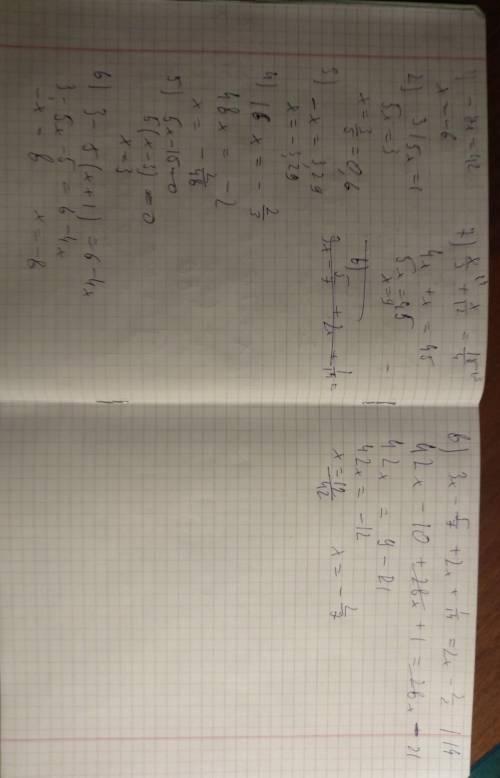 1) -7x = 42
x = -6
2) 3/5x = 1
5x = 3
x = 3/5 = 0,6
3) -x = 3,29
x = -3,29
4) 16x = -2/3
48x = -2
x = -2/48
5) 5x - 15 = 0
5(x-3) = 0
x = 3
6) 3 - 5(x+1) = 6 - 4x
3 - 5x - 5 = 6 - 4x
-x = 8
x = -8
4x + x = 45
5x = 45
x = 9
8)
3x - 5/7 + 2x + 1/14 =
8) 3x - 5/7 + 2x + 1/14 = 2x - 3/2 | 14
42x - 10 + 28x + 1 = 28x - 21
42x = 9 - 21
42x = -12
x = 12/42 x = -2/7